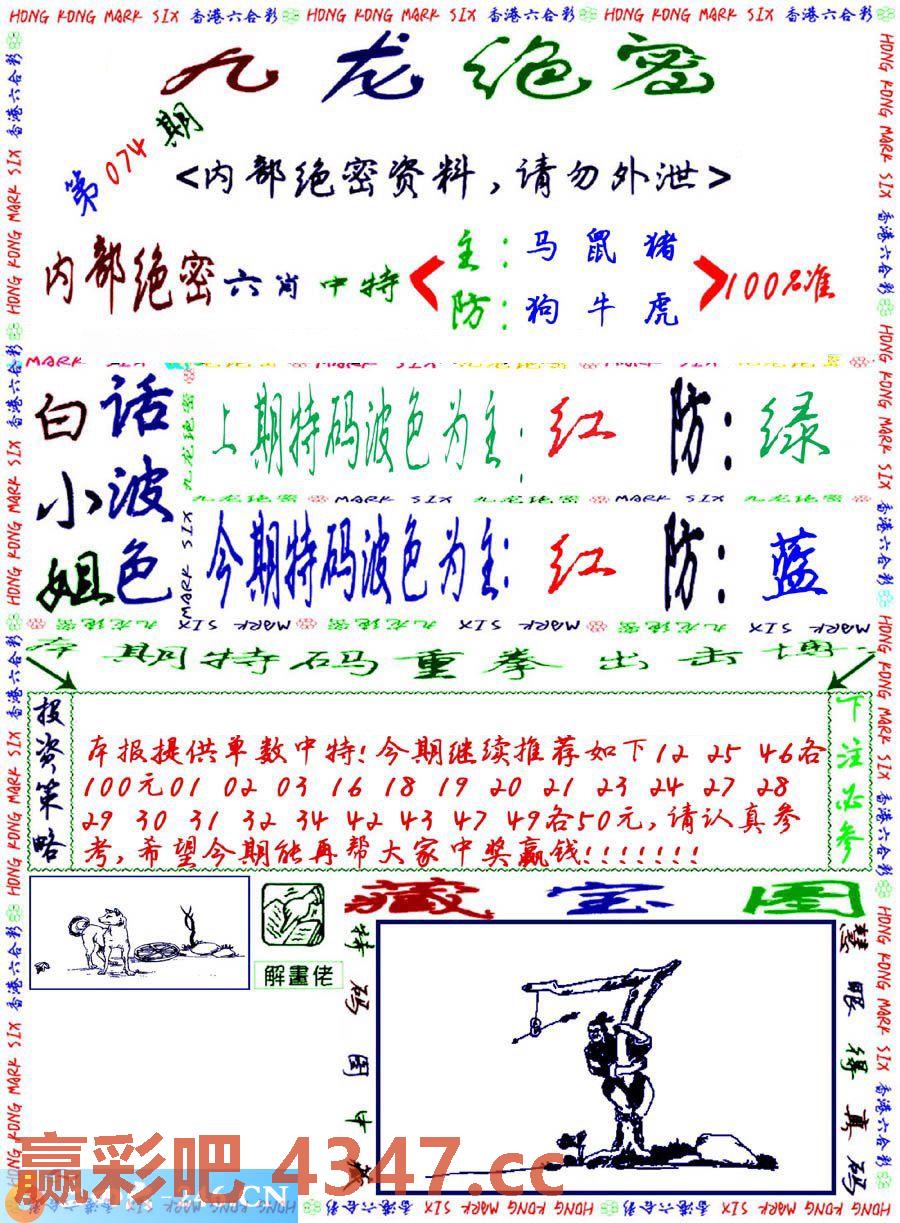 HONG KONG MARK SIX 香港六合彩 HONG KONG MARK SIX 香港六合彩 HONG KONG MARK SIX 香港六合彩
九龙绝密
第074期
<内部绝密资料,请勿外泄>
内部绝密六肖中特
主:马鼠猪
防:狗牛虎
100%准
白话小姐
波色
上期特码波色为主:红 防:绿
九龙绝密 MARK SIX 九龙绝密 MARK SIX 九龙绝密
今期特码波色为主:红 防:蓝
期特码重拳出击
投资策略
本报提供单数中特!今期继续推荐如下12 25 46各
100元01 02 03 16 18 19 20 21 23 24 27 28
29 30 31 32 34 42 43 47 49各50元,请认真参
考,希望今期能再帮大家中奖赢钱!!!!!!!
下注必参
解畫佬
藏宝图
特码图中
慧眼得真码
赢彩吧 4347.cc
.CN